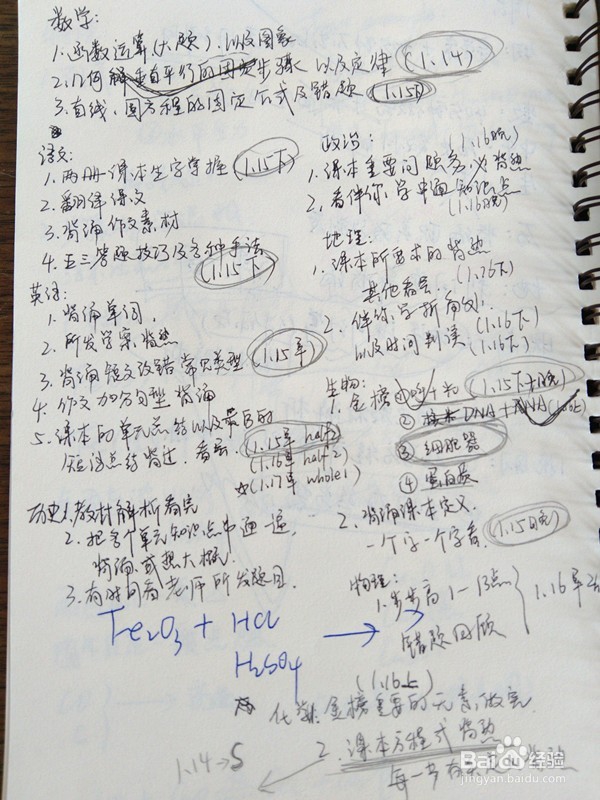 数学:
1.函数运算(大题),以及图象
2.几何 步骤 以及定律 (1.14)
3.直线,圆方程的固定公式及错题 (1.15)
语文:
1.两册课本生字掌握 (1.15下)
2.翻译课文
3.背诵作文素材
4. 答题技巧及各种手法
(1.15下)
英语:
1.背诵单词,
2.所发学案,背熟
3.背诵短文改错常见类型 (1.15早)
4.作文加分句型背诵
5.课本的单元总结以及最后的
短语总结背过,看完 (1.15早 half)
(1.16早 half2)
☆(1.17早 whole1)
历史1.教材解析看完
2.把各个单元知识点串通一遍,
背诵或想大概.
3.有时间看老师所发题目.
政治: (1.16晚)
1.课本重要问题务必背熟
2.看伴你学中通知识点
(1.16晚)
地理:
1.课本所要求的背熟
其他看完 (1.16下)
2.伴你学所有的: (1.16下)
以及时间判读 (1.16下)
生物: (1.15下+晚)
1.金榜 ①
② DNA+RNA
③细胞器
④蛋白质
2.背诵课本定义.
一个字一个字看. (1.15晚)
物理:
1.步步高 1-13点 1.16早
错题回顾
Fe₂O₃ + HCl →
H₂SO₄
(1.16上)
化学:金榜重要的元素,做完.
2.课本方程式背熟
1.14→5
每一步
Baidu经验
jingyan.baidu.com